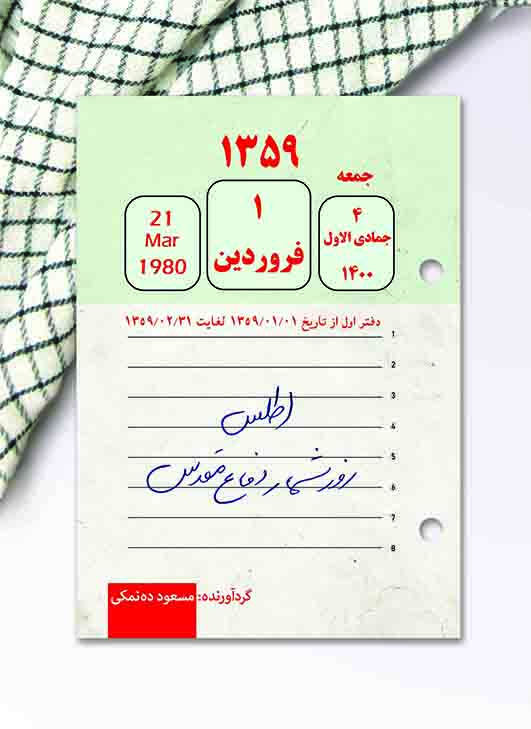 ۱۳۵۹
جمعه
۴
جمادی الاول
۱۴۰۰
۱
فروردین
21
Mar
1980
دفتر اول از تاریخ ۱۳۵۹/۰۱/۰۱ لغایت ۱۳۵۹/۰۲/۳۱
1
2
3
اطلس
4
5
روزشمار دفاع مقدس
6
7
8
گردآورنده: مسعود ده‌نمکی